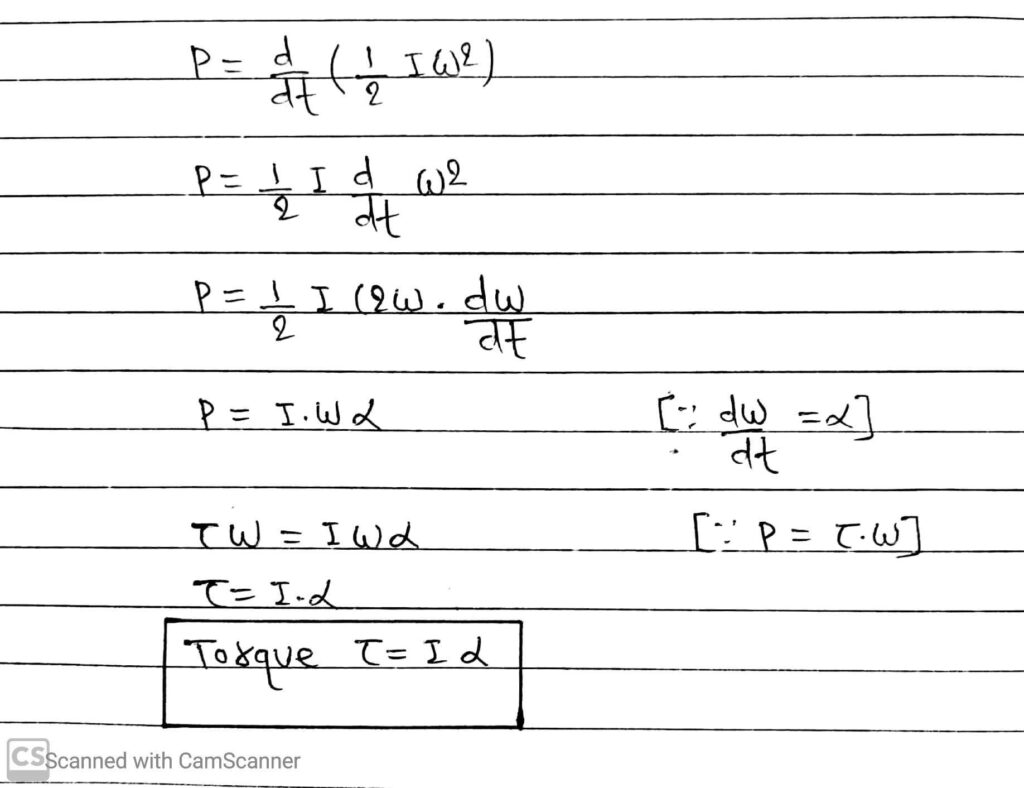 P = d/dt (1/2 Iω²)
P = 1/2 I d/dt ω²
P = 1/2 I (2ω . dω/dt
P = I.ωα [∵ dω/dt = α]
τω = Iωα [∵ P = τ.ω]
τ = I.α
Torque τ = Iα
CS Scanned with CamScanner